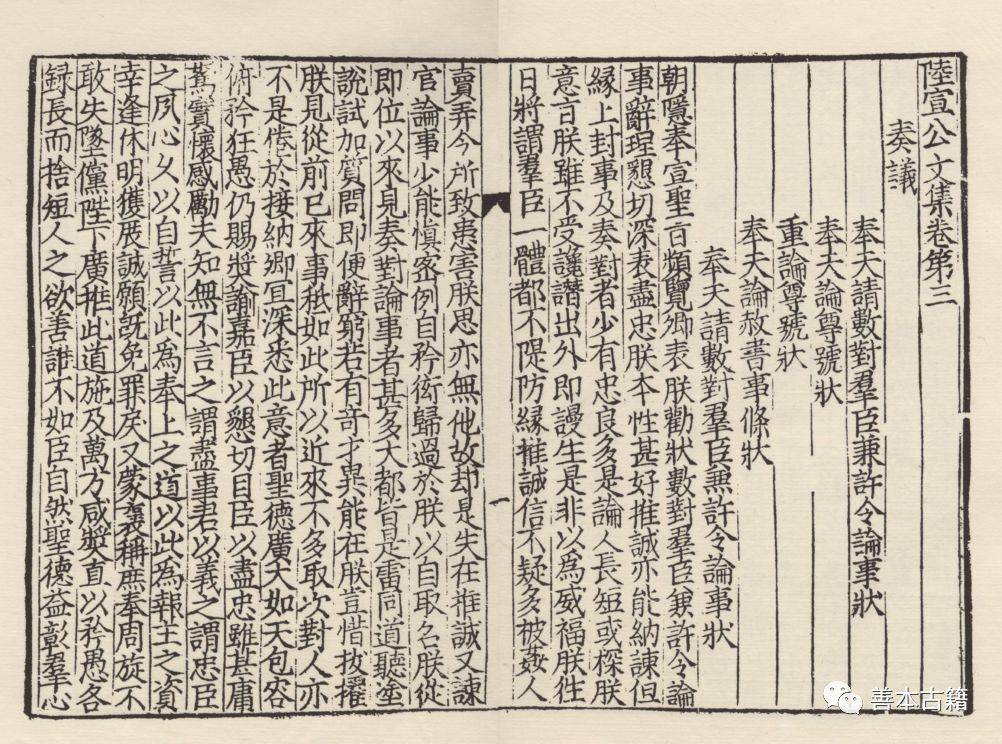 陸宣公文集卷第三
奏議
奉天請數對羣臣兼許令論事狀
奉天論尊號狀
重論尊號狀
奉天論赦書事條狀
奉天請數對羣臣兼許令論事狀
朝隱奉宣聖旨頻覽卿表朕勸狀數對羣臣兼許令論
事辭理懇切深表盡忠朕本性甚好推誠亦能納諫但
緣上封事及奏對者少有忠良多是論人長短或探朕
意旨朕雖不受讒譖出外即謾生是非以為威福朕往
日將謂羣臣一體都不隄防緣推誠信不疑多被姦人
賣弄今所致患害朕思亦無他故却是失在推誠又諫
官論事少能慎密例自矜衒歸過於朕以自取名朕從
即位以來見奏對論事者甚多大都皆是雷同道聽塗
說試加質問即便辭窮若有奇才異能在朕豈惜拔擢
朕見從前已來事秪如此所以近來不多取次對人亦
不是倦於接納卿宜深悉此意者聖德廣大如天包容
俯矜狂愚仍賜奬諭嘉臣以懇切目臣以盡忠雖甚庸
駑實懷感勵夫知無不言之謂盡事君以義之謂忠臣
之夙心久以自誓以此為奉上之道以此為報主之資
幸逢休明獲展誠願既免罪戾又蒙褒稱庶奉周旋不
敢失墜儻陛下廣推此道施及萬方咸奬直以矜愚各
録長而捨短人之欲善誰不如臣自然聖德益彰羣心
一
善本古籍